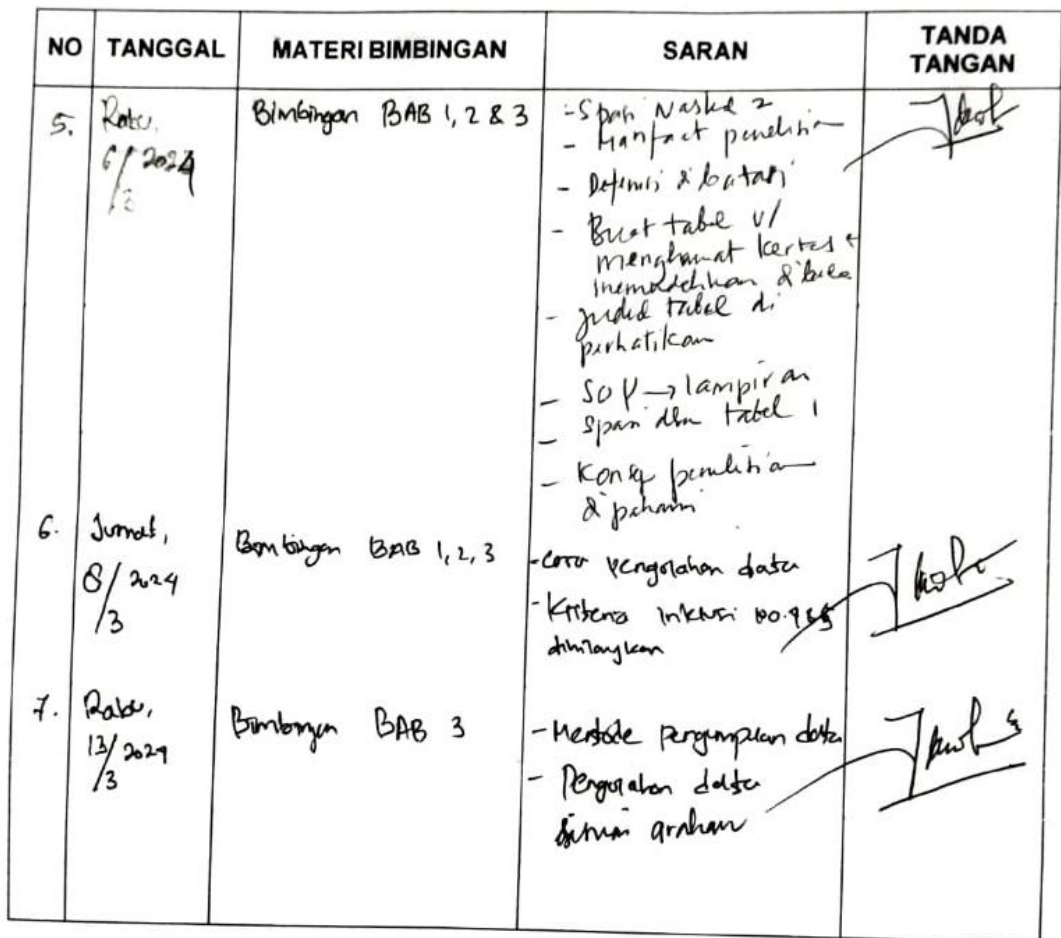 NO TANGGAL MATERI BIMBINGAN SARAN TANDA TANGAN
5. Rabu, Bimbingan BAB 1, 2 & 3 - Spasi Naskah 2
6/3 2024 - Manfaat penelitian
- Definisi dibatasi
- Buat tabel u/
menghemat kertas +
memudahkan dibaca
- judul tabel di
perhatikan
- SOP → lampiran
- Spasi dlm tabel 1
- Konsep penelitian
dipahami
6. Jumat, Bimbingan BAB 1, 2, 3 - Cara pengolahan data
8/3 2024 - Kriteria inklusi no.
dihilangkan
7. Rabu, Bimbingan BAB 3 - Metode pengumpulan data
13/3 2024 - Pengolahan data
sesuai arahan